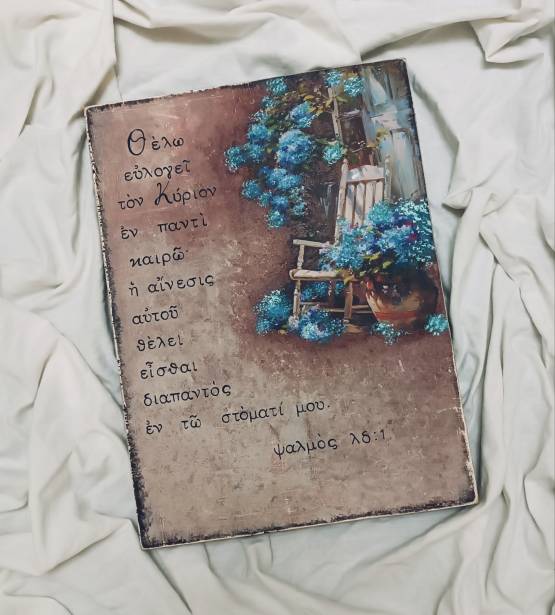 Θὲλω
εὐλογεῖ
τὸν Κύριὸν
ἐν παντὶ
καιρῶ·
ἡ αἴνεσις
αὐτοῦ
θὲλει
εἶσθαι
διαπαντὸς
ἐν τῶ στὸματί μου.
ψαλμὸς λδ:1